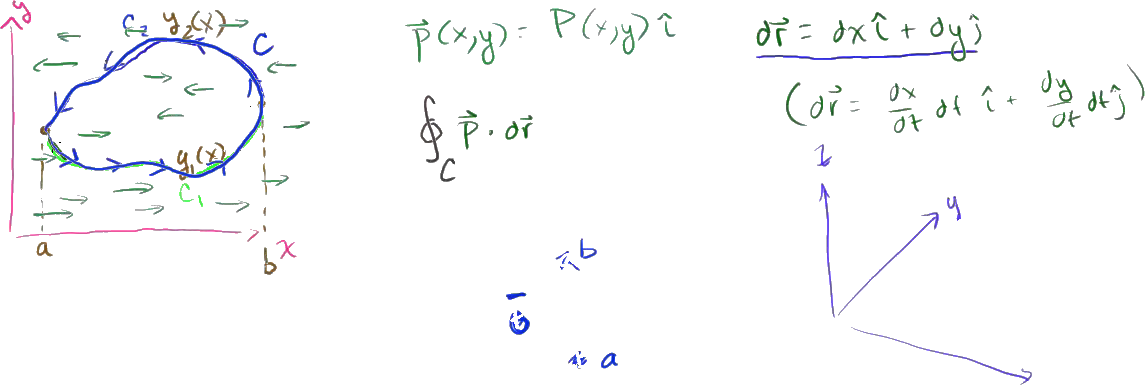 y
C₂ y₂(x)
C
y₁(x)
C₁
a
b
x
P⃗(x,y) = P(x,y) î
∮_C P⃗ · dr⃗
b
a
dr⃗ = dx î + dy ĵ
(dr⃗ = dx/dt dt î + dy/dt dt ĵ)
z
y